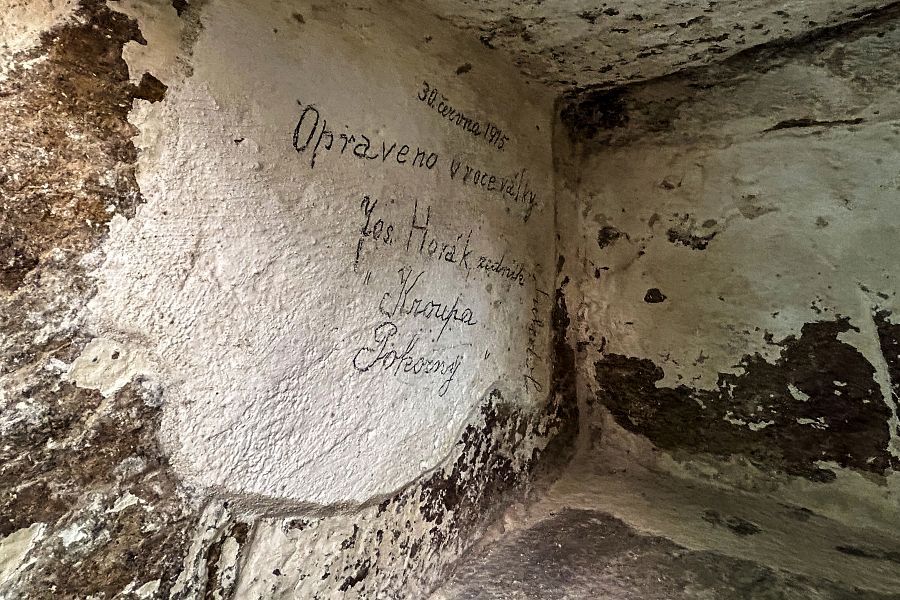 30. června 1915.
Opraveno v roce války.
Jos. Horák zedník
" Kroupa
Pokorný "